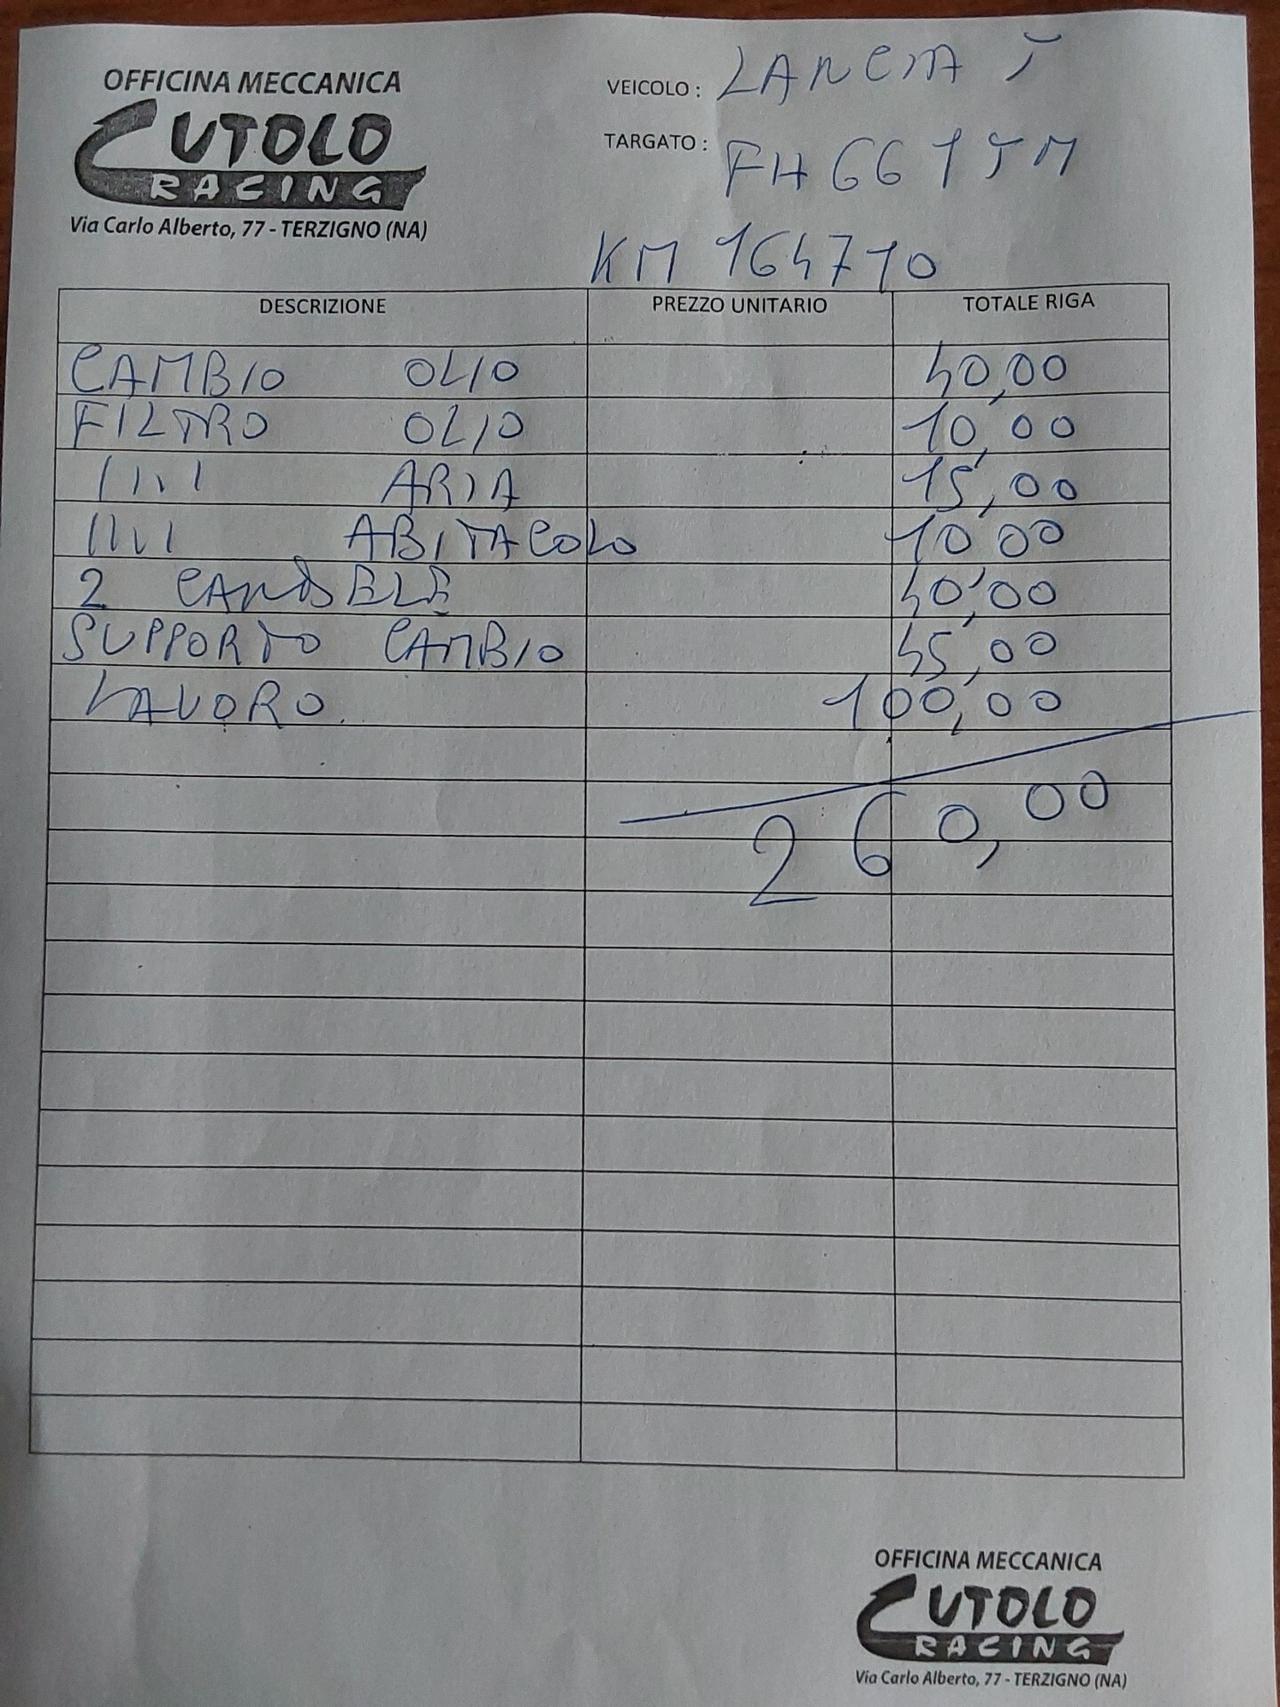 OFFICINA MECCANICA
CUTOLO
RACING
Via Carlo Alberto, 77 - TERZIGNO (NA)
VEICOLO : LANCIA Y
TARGATO : FH661JM
KM 164710
DESCRIZIONE PREZZO UNITARIO TOTALE RIGA
CAMBIO OLIO 40,00
FILTRO OLIO 10,00
IIII ARIA 15,00
IIII ABITACOLO 10,00
2 CANDELE 40,00
SUPPORTO CAMBIO 45,00
LAVORO 100,00
260,00
OFFICINA MECCANICA
CUTOLO
RACING
Via Carlo Alberto, 77 - TERZIGNO (NA)